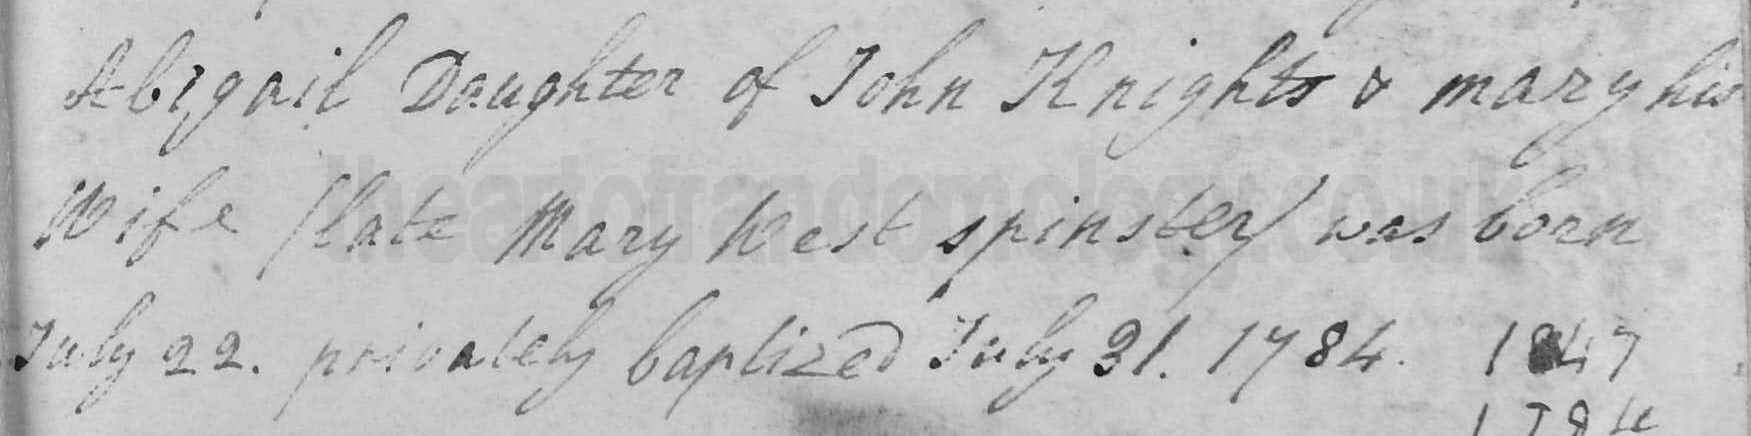 Abigail Daughter of John Knights & mary his
Wife /late Mary West spinster/ was born
July 22. privately baptized July 31. 1784. 1847
1784
theartofrandomology.co.uk